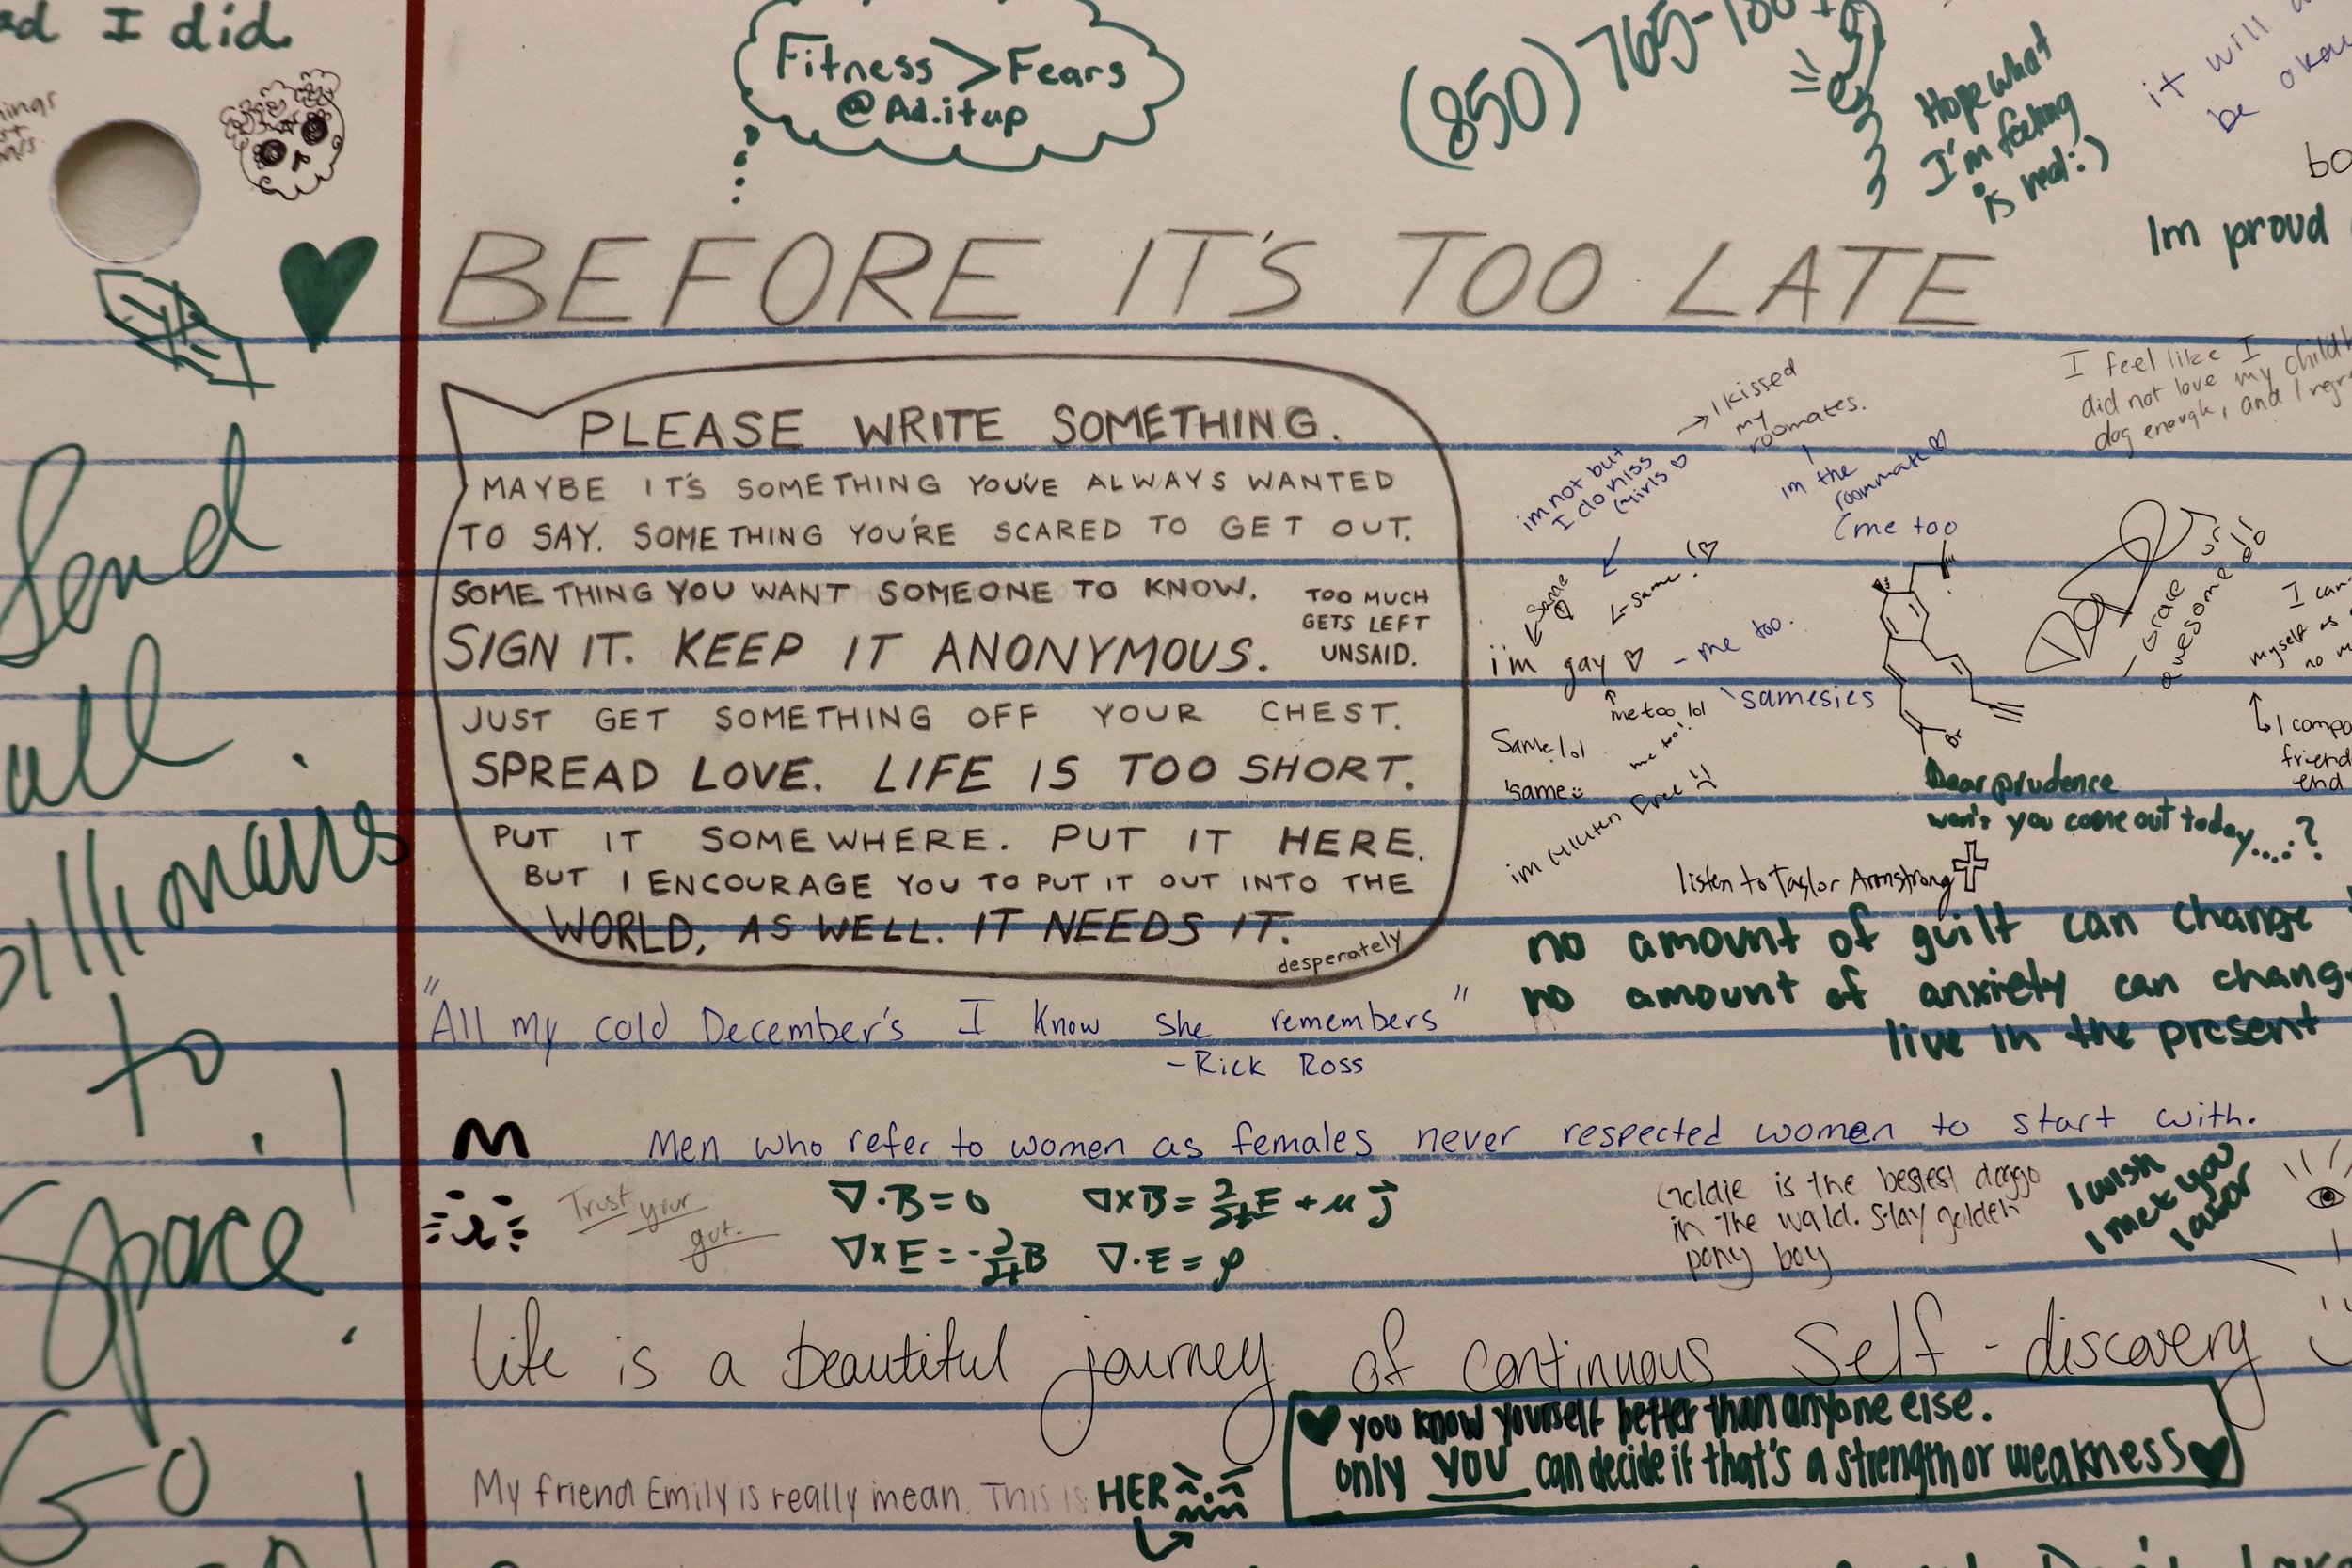 ad I did.
Fitness > Fears
@Ad.itup
(850) 765-
Hope what
I'm feeling
is real :)
it will
be okay
Im proud
BEFORE IT'S TOO LATE
PLEASE WRITE SOMETHING.
MAYBE IT'S SOMETHING YOU'VE ALWAYS WANTED
TO SAY. SOMETHING YOU'RE SCARED TO GET OUT.
SOMETHING YOU WANT SOMEONE TO KNOW.
SIGN IT. KEEP IT ANONYMOUS.
TOO MUCH
GETS LEFT
UNSAID.
JUST GET SOMETHING OFF YOUR CHEST.
SPREAD LOVE. LIFE IS TOO SHORT.
PUT IT SOMEWHERE. PUT IT HERE.
BUT I ENCOURAGE YOU TO PUT IT OUT INTO THE
WORLD, AS WELL. IT NEEDS IT.
desperately
I feel like I
did not love my child
dog enough, and I regr
→ I kissed
my
roomates.
im not but
I do kiss
Girls ♡
im the
roommate ♡
(me too
← Same
← same! ♡
i'm gay ♡
- me too.
samesies
me too lol
me too!
Same lol
same
im Gluten Free
- Grace ur
awesome
I can
myself as
no m
I compa
friend
end
Br
Dear prudence
won't you come out today....?
listen to Taylor Armstrong
no amount of guilt can change
no amount of anxiety can chang
live in the present
Send
all
billionairs
to
Space!
GO
"All my cold December's I know she remembers"
-Rick Ross
M
Men who refer to women as females never respected women to start with.
Trust your
gut.
∇·B=0
∇×B=∂/∂t E + μ J
∇×E=-∂/∂t B
∇·E=ρ
Goldie is the bestest doggo
in the wald. Stay golden
pony boy
I wish
I met you
later
life is a beautiful journey of continuous Self-discovery
♥ you know yourself better than anyone else.
only YOU can decide if that's a strength or weakness ♥
My friend Emily is really mean. This is HER